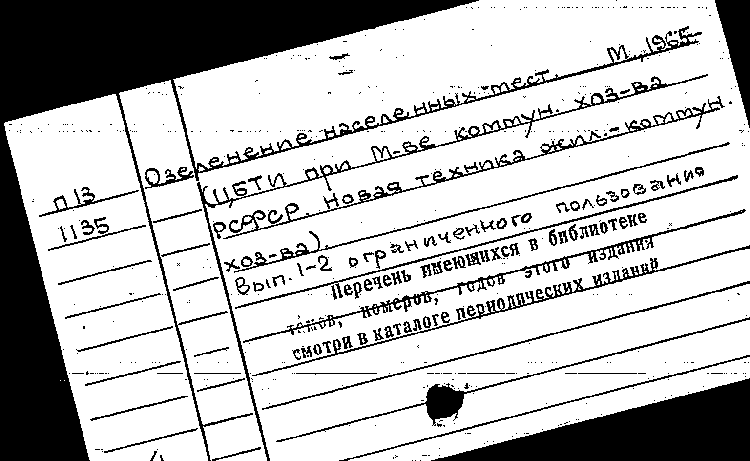 Озеленение населенных мест. М., 1965-
(ЦБТИ при М-ве коммун. хоз-ва
РСФСР. Новая техника жил.-коммун.
хоз-ва).
Вып. 1-2 ограниченного пользования
Перечень имеющихся в библиотеке
томов, номеров, годов этого издания
смотри в каталоге периодических изданий
П 13
1135